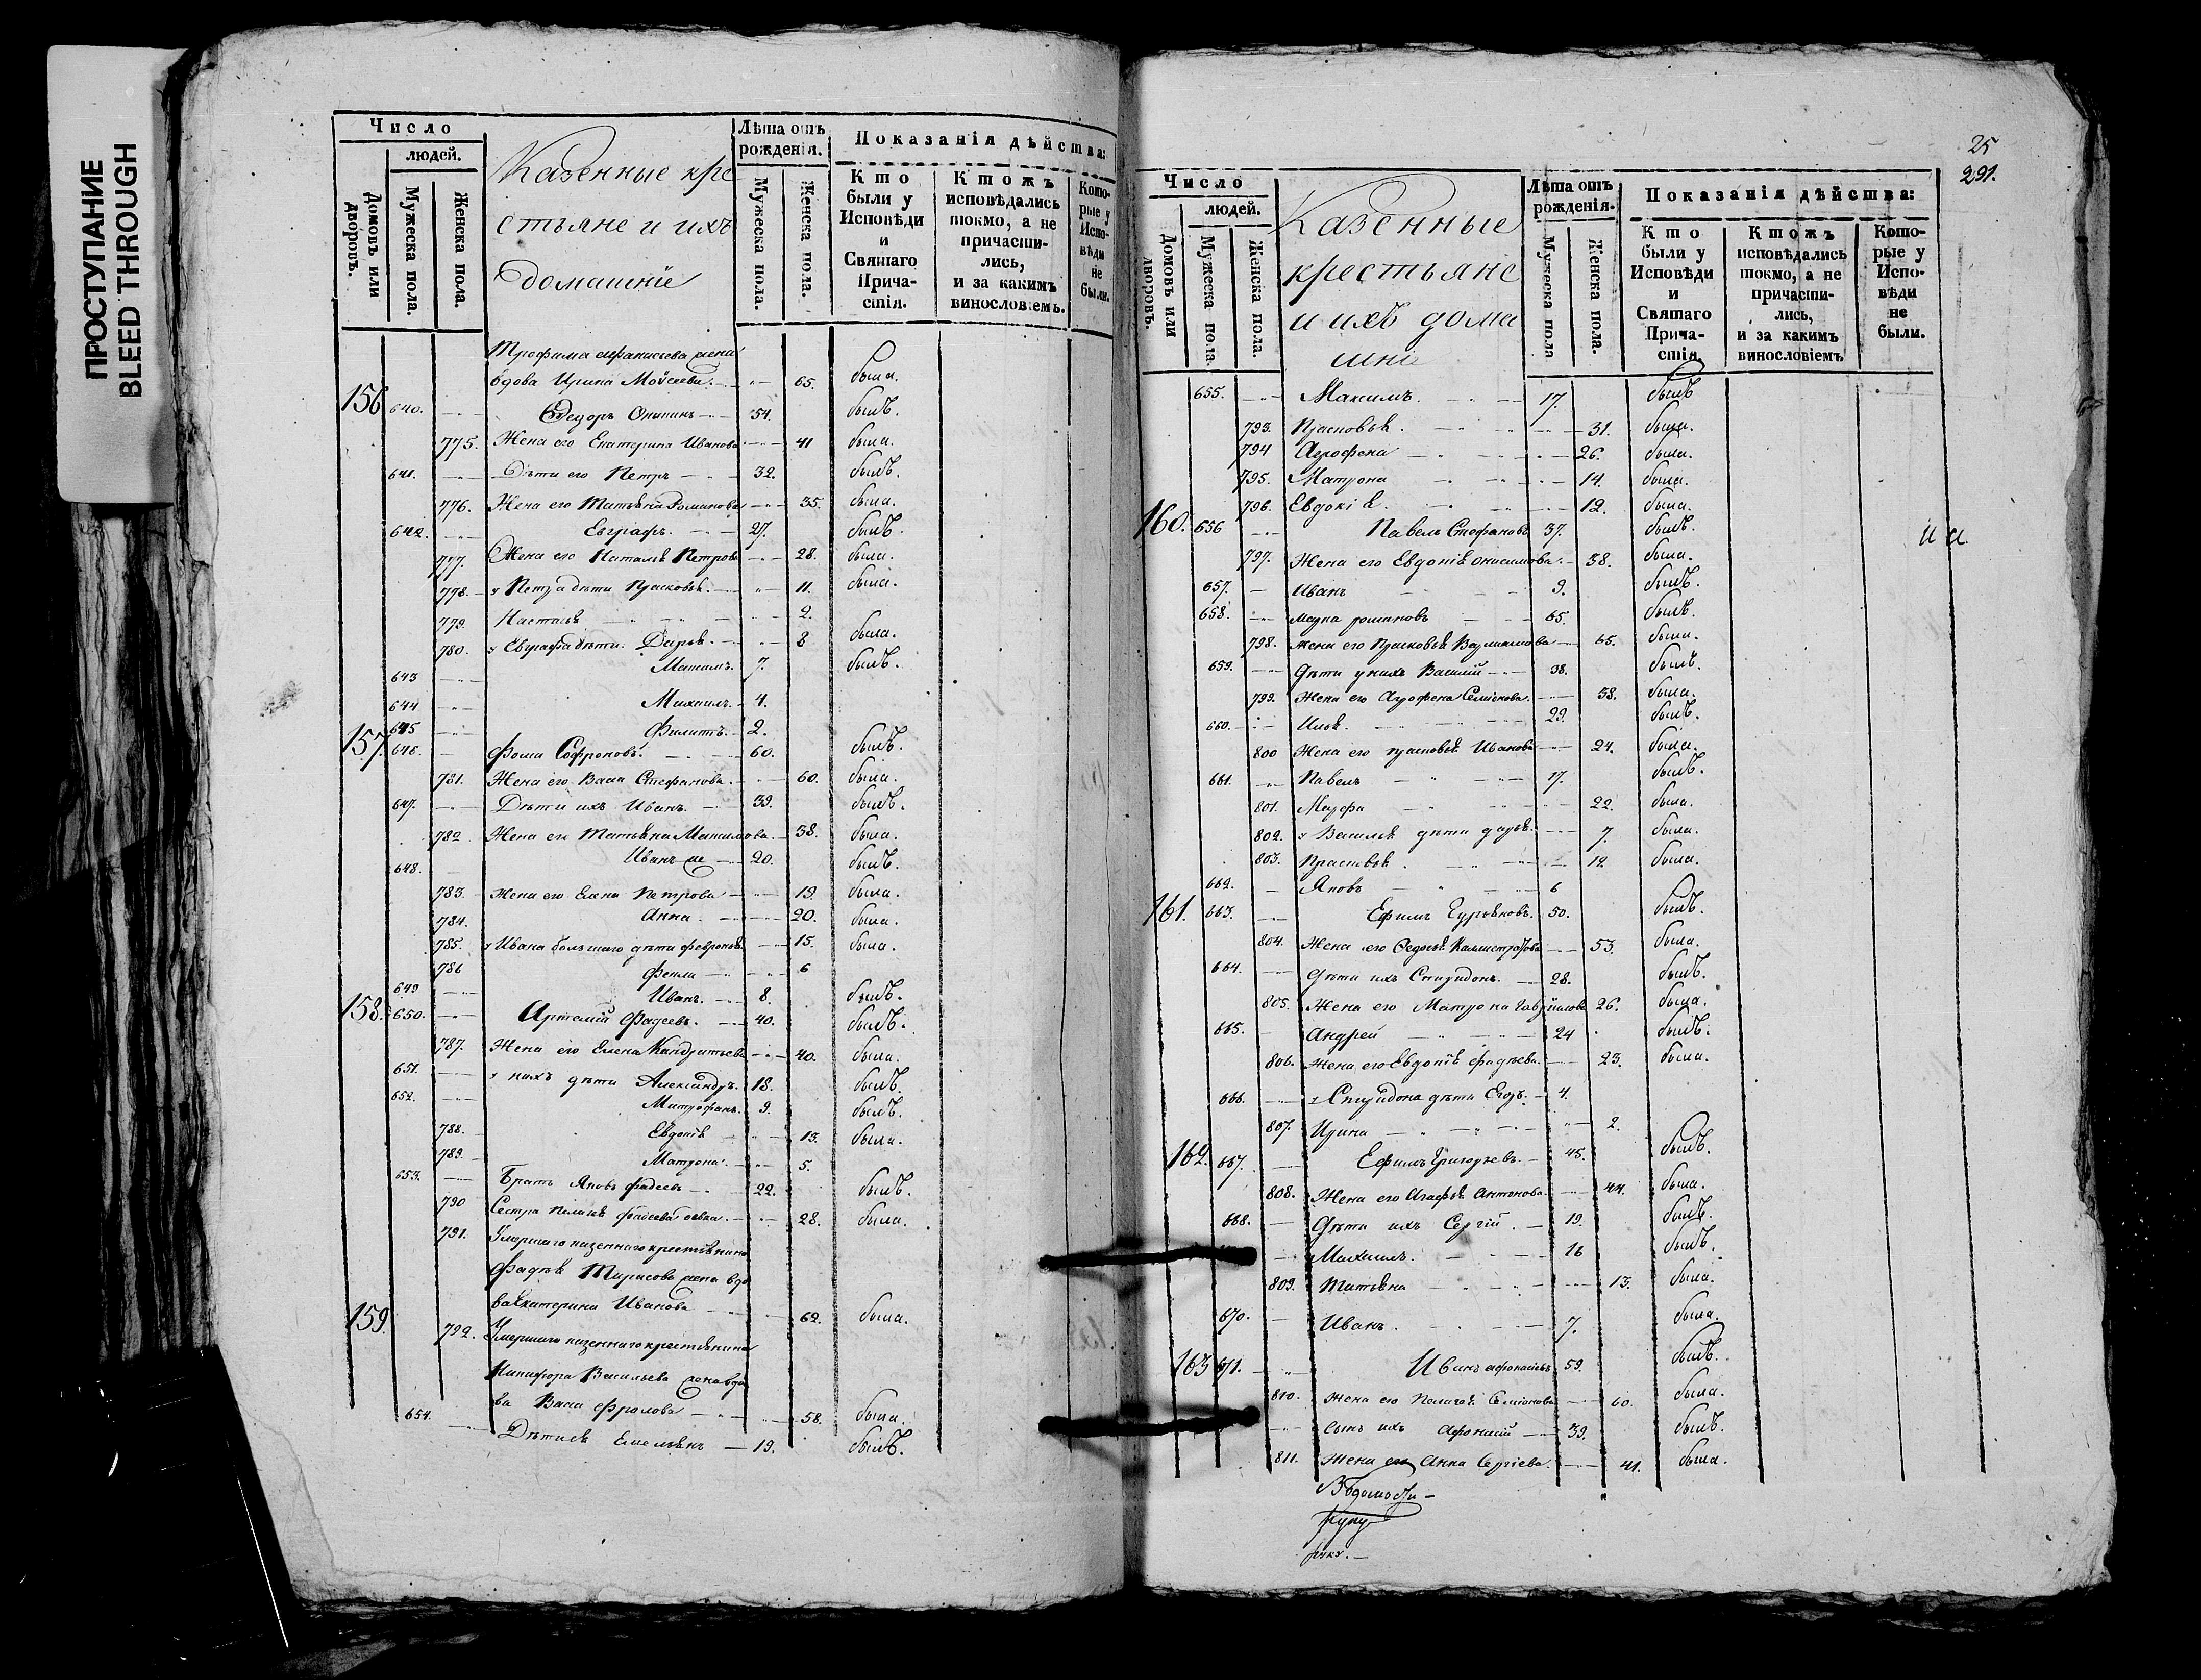 ПРОСТУПАНИЕ
BLEED THROUGH
Число
людей.
Домовъ или дворовъ.
Мужеска пола.
Женска пола.
Казенные кре
стьяне и ихъ
домашніе
Лѣта отъ рожденія.
Мужеска пола.
Женска пола.
Показанія дѣйства:
Кто были у Исповѣди и Святаго Причастія.
Ктожъ исповѣдались токмо, а не причастились, и за какимъ винословіемъ.
Которые у Исповѣди не были.
Трофима Афанасьева жена
вдова Ирина Моѵсеева. 65. была.
156 640. Ѳедоръ Осиповъ 54. былъ.
775. Жена его Екатерина Иванова 41 была.
641. Дѣти его Петръ 32. былъ.
776. Жена его Татьяна Романова 35. была.
642. Евграфъ. 27. былъ.
777. Жена его Наталья Петрова 28. была.
778. у Петра дѣти Прасковья. 11. была.
779. Настасья 2.
780. у Евграфа дѣти. Дарья. 8 была.
643 Максимъ. 7. былъ.
644 Михаилъ. 4.
645 Филиппъ. 2.
157. 646. Фома Софроновъ. 60. былъ.
781. Жена его Васса Стефанова. 60. была.
647. Дѣти ихъ Иванъ. 39. былъ.
782. Жена его Татьяна Максимова. 38. была.
648. Иванъ же 20. былъ.
783. Жена его Елена Петрова 19. была.
784. Анна. 20. была.
785. у Ивана большаго дѣти Февронья. 15. была.
786 Фекла 6
649 Иванъ. 8. былъ.
158. 650. Артемій Фадеевъ. 40. былъ.
787. Жена его Елена Кандратьева 40. была.
651. у нихъ дѣти Александръ. 18. былъ.
652. Митрофанъ. 9. былъ.
788. Евдокія 13. была.
789. Матрона. 5.
653. Братъ Яковъ Фадеевъ 22. былъ.
790 Сестра Фадеева девка. 28. была.
791. Умершаго казеннаго крестьянина
Фадѣя Тарасова жена вдо
ва Екатерина Иванова 62. была.
159. 792. Умершаго казеннаго крестьянина
Никифора Васильева жена вдо
ва Васса Фролова 58. была.
654. Дѣти ея Емельянъ 19. былъ.
25
291.
Число
людей.
Домовъ или дворовъ.
Мужеска пола.
Женска пола.
Казенные
крестьяне
и ихъ дома
шніе
Лѣта отъ рожденія.
Мужеска пола
Женска пола.
Показанія дѣйства:
Кто были у Исповѣди и Святаго Причастія.
Ктожъ исповѣдались токмо, а не причастились, и за какимъ винословіемъ
Которые у Исповѣди не были.
655. Максимъ. 17. былъ
793. Прасковья. 31. была.
794 Агрофена 26. была.
795. Матрона 14. была.
796. Евдокія. 12. была.
160. 656 Павелъ Стефановъ 37. былъ.
797. Жена его Евдокія Онисимова. 38. была.
657. Иванъ 9. былъ.
658. Марка Романовъ 65. былъ.
798. Жена его Прасковья 65. была.
659. Дѣти у нихъ Василій 38. былъ.
799. Жена его Агрофена Семіонова. 38. была.
660. Илья. 29. былъ.
800 Жена его Прасковья Иванова 24. была.
661. Павелъ 17. былъ.
801. Марфа 22. была.
802. у Василья дѣти Дарья. 7. была.
803. Прасковья. 12. была.
662. Яковъ 6
161. 663. Ефимъ Гурьяновъ. 50. былъ.
804. Жена его Федосья Калистратова 53. была.
664. Дѣти ихъ Спиридонъ. 28. былъ.
805. Жена его Матрона Гаврилова 26. была.
665. Андрей 24 былъ.
806. Жена его Евдокія Фадѣева. 23. была.
666. у Спиридона дѣти Егоръ. 4.
807. Ирина 2.
162. 667. Ефимъ Григорьевъ. 45. былъ.
808. Жена его Агафья Антонова. 44. была.
668. Дѣти ихъ Сергій. 19. былъ.
Михаилъ. 16 былъ.
809. Татьяна 13. была.
670. Иванъ. 7. была.
163 671. Иванъ Афонасьевъ 59. былъ.
810. Жена его Пелагея Семіонова 60. была.
Сынъ ихъ Афонасій 39. былъ.
811. Жена его Анна Сергіева. 41. была.